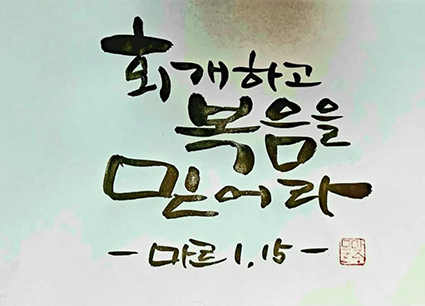 회개하고
복음을
믿어라
- 마르 1, 15 -